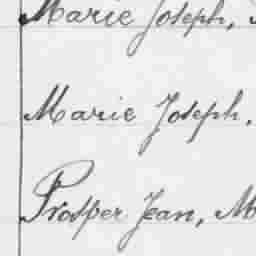 Marie Joseph,
Marie Joseph.
Prosper Jean, M